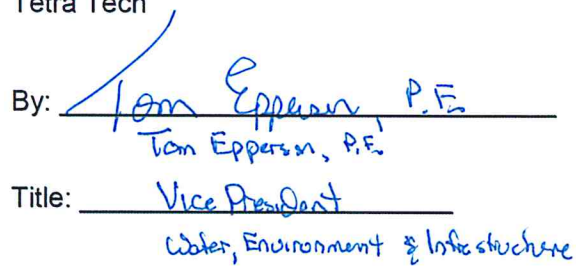 Tetra Tech
By: Tom Epperson, P.E.
Tom Epperson, P.E.
Title: Vice President
Water, Environment & Infrastructure